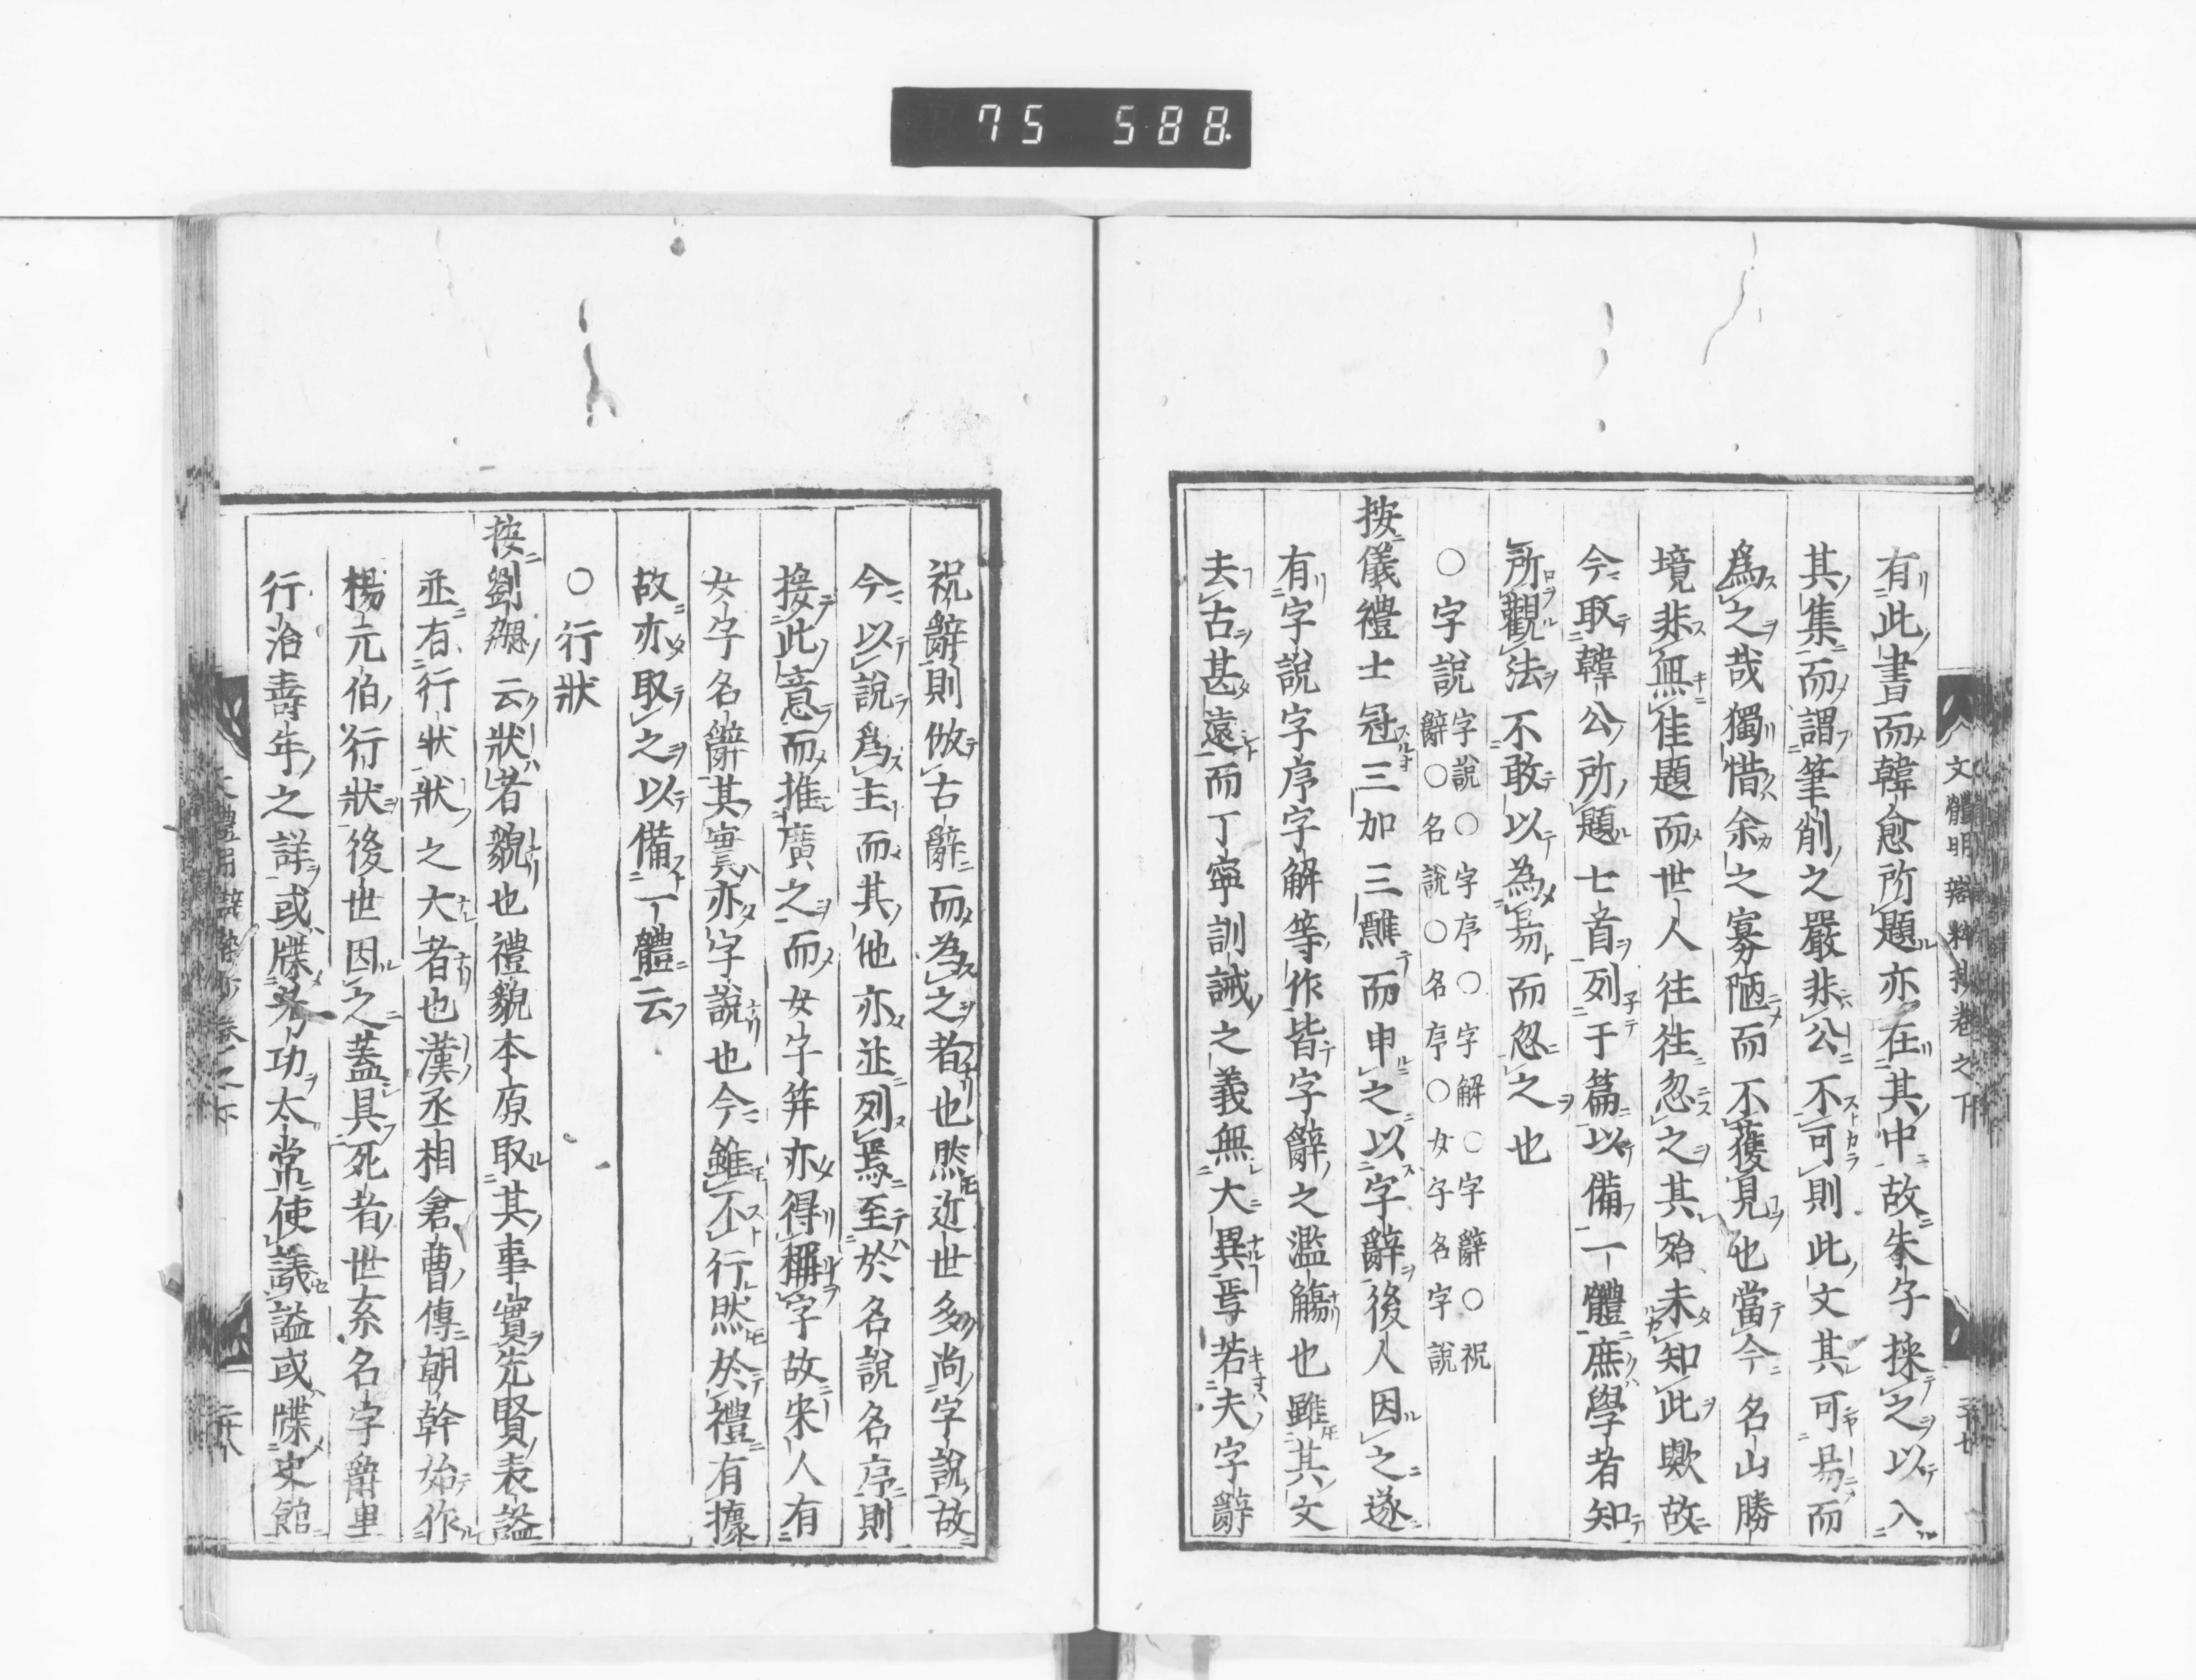 75 588
文體明辯粹抄卷之下
有此書而韓愈所題亦在其中故朱子採之以入
其集而謂筆削之嚴非公不可則此文其可易而
爲之哉獨惜余之寡陋而不獲見也當今名山勝
境非無佳題而世人往往忽之其殆未知此歟故
今取韓公所題七首列于篇以備一體庶學者知
所觀法不敢以為易而忽之也
○字說 字說○字序○字解○字辭○祝
辭○名說○名序○女子名字說
按儀禮士冠三加三醮而申之以字辭後人因之遂
有字說字序字解等作皆字辭之濫觴也雖其文
去古甚遠而丁寧訓誡之義無大異焉若夫字辭
祝辭則倣古辭而為之者也然近世多尚字說故
今以說爲主而其他亦並列焉至於名說名序則
接此意而推廣之而女子笄亦得稱字故宋人有
女子名辭其實亦字說也今雖不行然於禮有據
故亦取之以備一體云
○行狀
按劉勰云狀者貌也禮貌本原取其事實先賢表謚
並有行狀狀之大者也漢丞相倉曹傳朝幹始作
楊元伯行狀後世因之蓋具死者世系名字爵里
行治壽年之詳或牒考功太常使議謚或牒史館